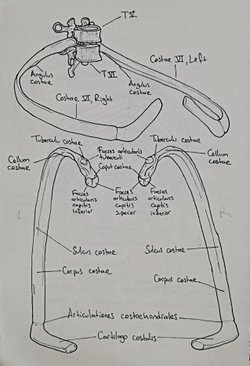 T V
Costae VI, Left
T VI
Angulus
costae
Angulus
costae
Costae VI, Right
Tuberculu costae
Tuberculu costae
Collum
costae
Facies articularis
tuberculi
Collum
costae
Caput costae
Facies
articularis
capitis
inferior
Facies
articularis
capitis
superior
Facies
articularis
capitis
inferior
Sulcus costae
Sulcus costae
Corpus costae
Corpus costae
Articulationes costochondrales
Cartilago costalis